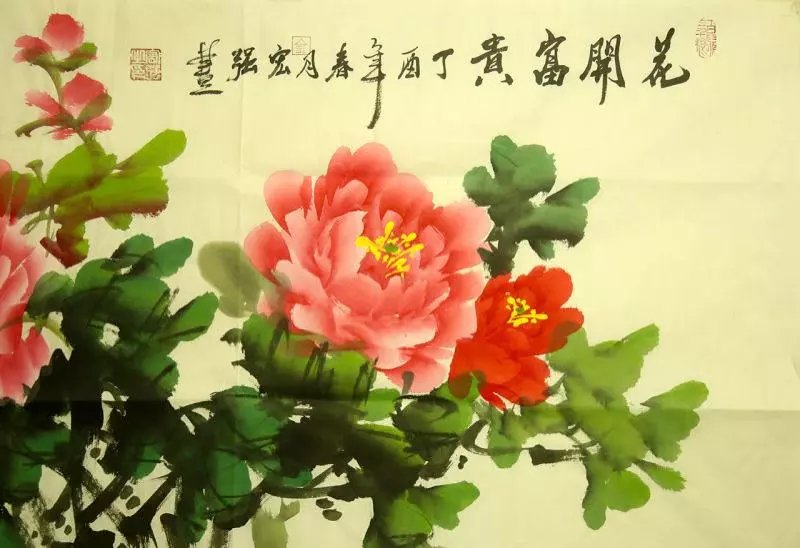 花開富貴丁酉年春月宏强畫